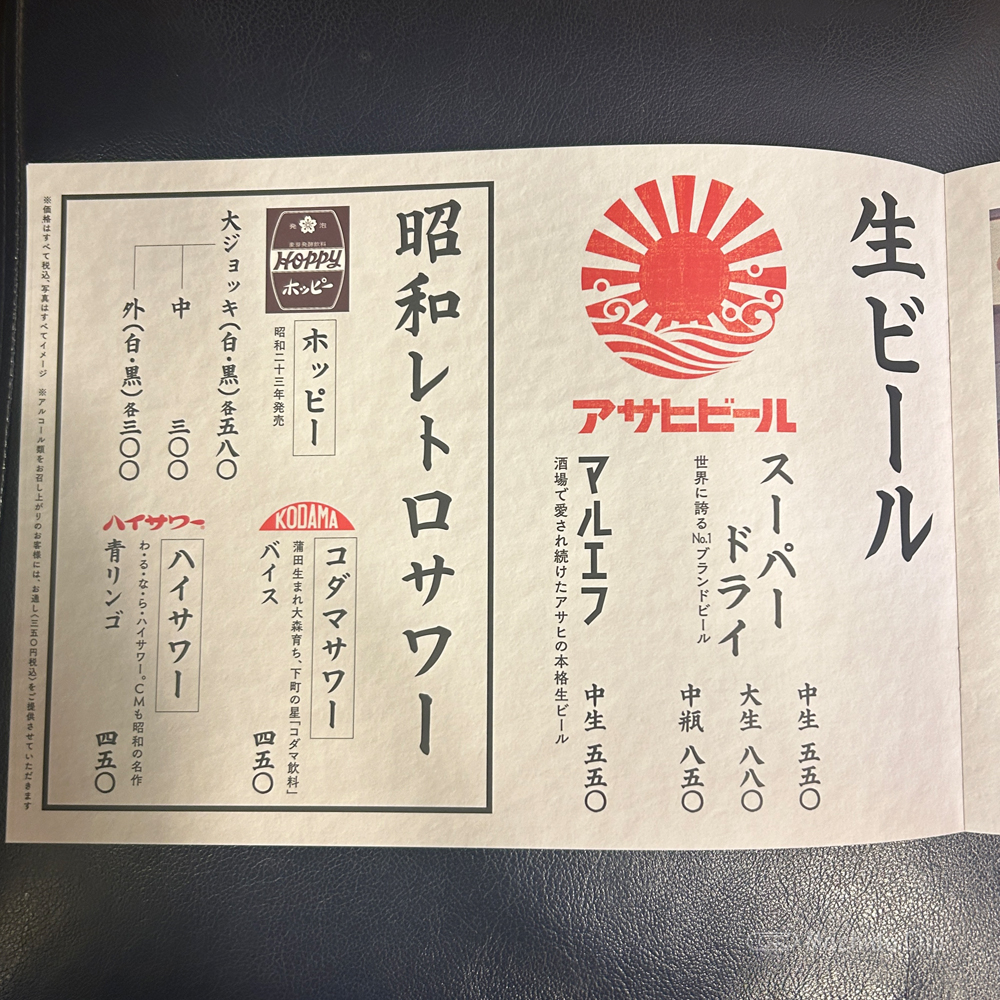 生ビール
アサヒビール
スーパー
ドライ
世界に誇るNo.1ブランドビール
中生 五五〇
大生 八八〇
中瓶 八五〇
マルエフ
酒場で愛され続けたアサヒの本格生ビール
中生 五五〇
昭和レトロサワー
発泡
HOPPY
ホッピー
ホッピー
昭和二十三年発売
大ジョッキ(白・黒)各五八〇
中 三〇〇
外(白・黒)各三〇〇
KODAMA
コダマサワー
蒲田生まれ大森育ち、下町の星「コダマ飲料」
バイス 四五〇
ハイサワー
ハイサワー
わ・る・な・ら・ハイサワー。CMも昭和の名作
青リンゴ 四五〇
※価格はすべて税込、写真はすべてイメージ ※アルコール類をお召し上がりのお客様には、お通し(三五〇円税込)をご提供させていただきます